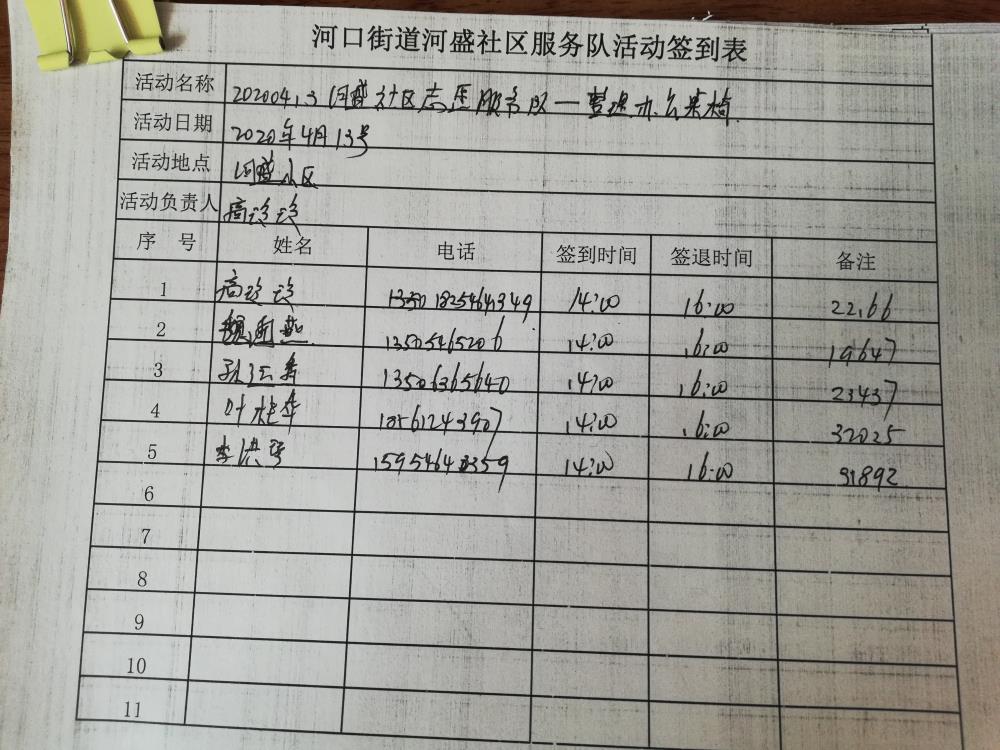 河口街道河盛社区服务队活动签到表
活动名称 河盛社区志愿服务队一整理办公桌椅
活动日期 2020年4月13号
活动地点 河盛社区
活动负责人 高珍珍
序 号 姓名 电话 签到时间 签退时间 备注
1 高珍珍 14:00 16:00 22166
2 13505465206 14:00 16:00 19647
3 13506365640 14:00 16:00 23437
4 叶桂华 18561243907 14:00 16:00 32025
5 李洪 14:00 16:00 31892
6
7
8
9
10
11